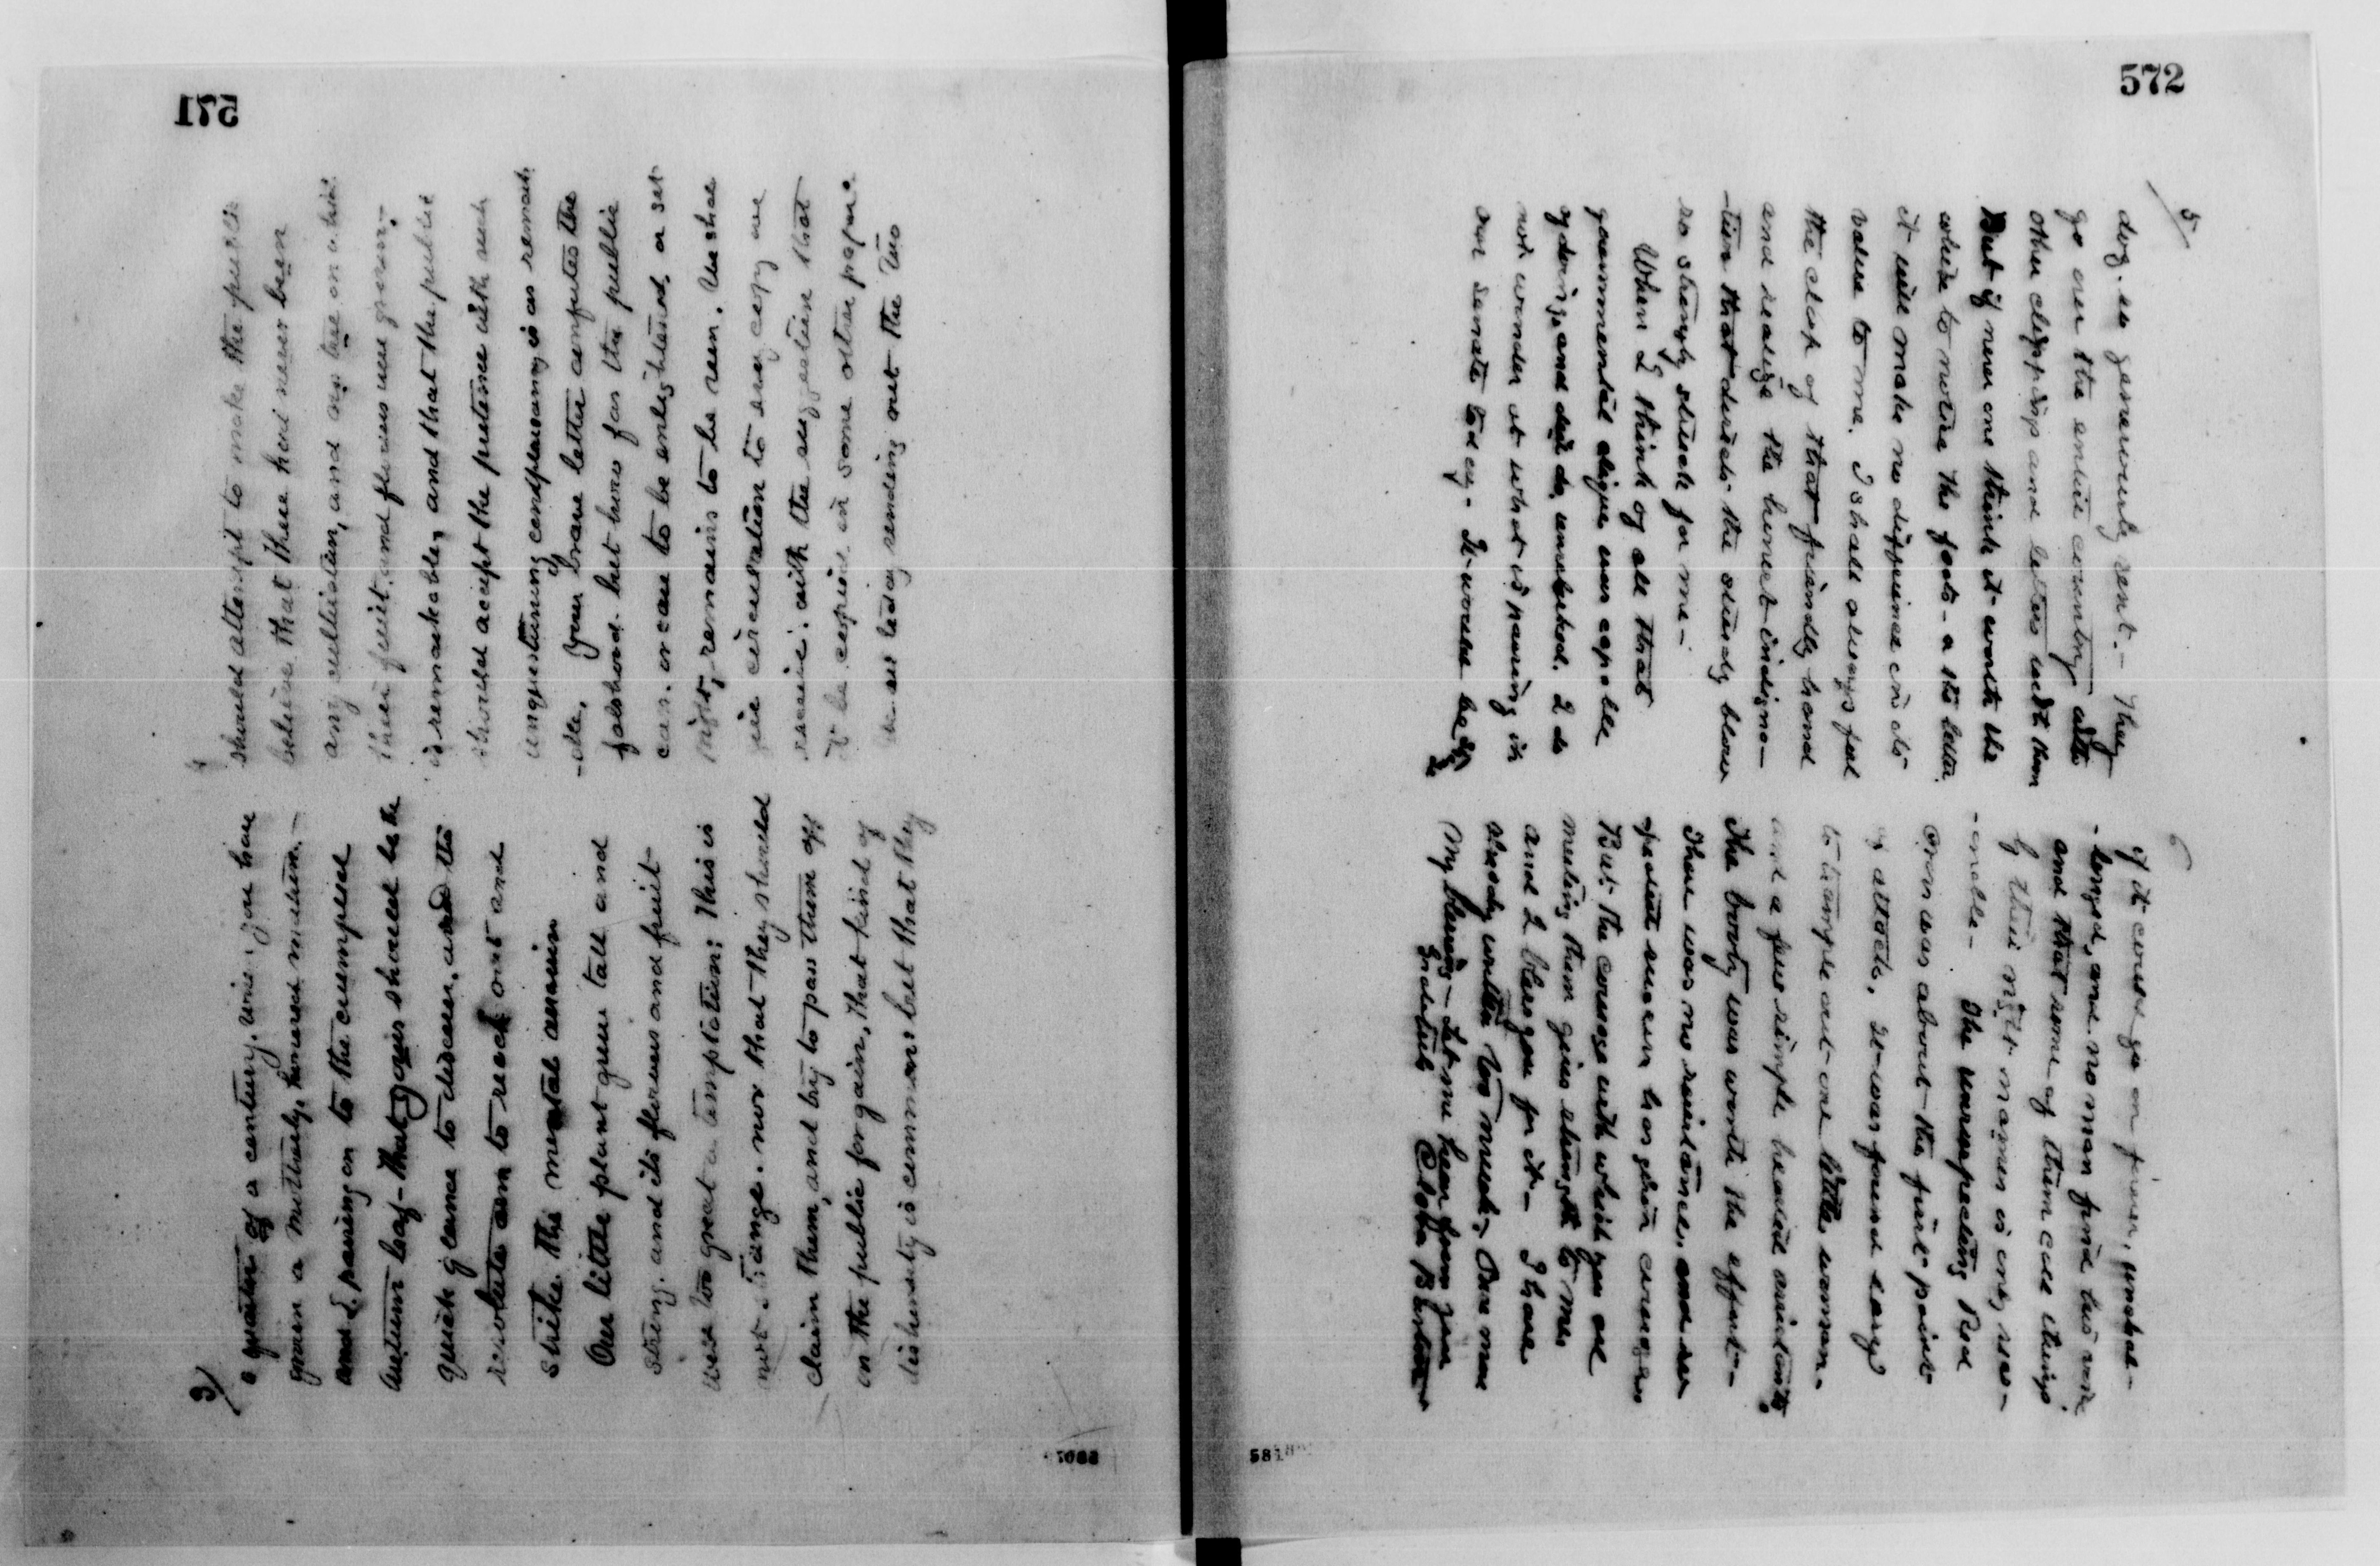 571
3/
a quarter of a century, wise, you have
grown a motherly, honored matron,—
and I, passing on to the crumpled
autumn leaf—that yours should be the
quick glance to discover, and the
resolute arm to reach out and
strike the mental assassin
Our little plant grew tall and
strong. and its flowers and fruit
were too great a temptation: This is
not strange. nor that they should
claim them, and try to pass them off
on the public for gain, that kind of
dishonesty is common: but that they
4
should attempt to make the public
believe that there had never been
any cultivation, and no tree on which
their fruit, and flowers were grown,
is remarkable, and that the public
should accept the pretence with such
unquestioning complaisancy is as remark
-able. Your brave letter confutes the
falsehood. but how far the public
can. or care to be enlightened, or set
right, remains to be seen. We shall
give circulation to every copy we
receive: with the suggestion that
it be copied in some other paper.
today sending out the two
572
5/
doz. so generously sent.— They
go over the entire country with
other clippings and letters with them
But if never one think it worth the
while to notice the facts—a the letter
it will make no difference in its
value to me. I shall always feel
the clasp of that friendly hand
and realize the honest indigna—
-tion that directs the sturdy blow
so strongly struck for me—
When I think of all that
governmental clique was capable
of doing, and did do, unrebuked. I do
not wonder at what is passing in
our senate today. It would be
6
if it could go on forever, unchal—
-lenged, and no man find his voice
and that some of them call things
by their right names is only reas—
-onable— The unsuspecting Red
Cross was about the first point
of attack, it was found easy
to trample out one little woman.
and a few simple hearted assistants.
The booty was worth the effort—
There was no resistance, and so
speedy success has given courage.
But the courage with which you are
meeting them gives strength to me
and I bless you for it— I have
already written too much, Once more
My blessing— Let me hear from you
Gratefully Clara Barton
581